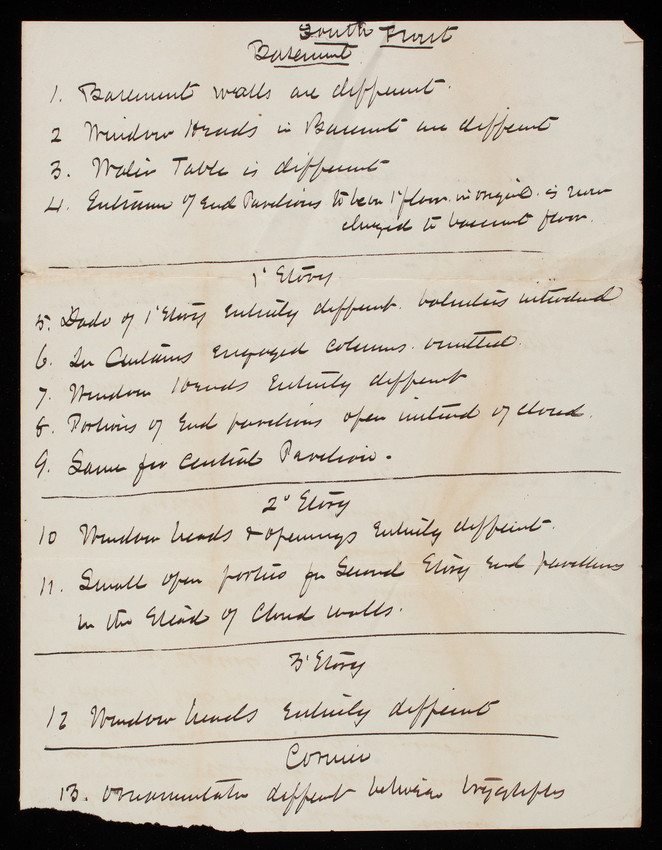 South Front
Basement
1. Basement walls are different.
2 Window Heads in Basemt are different
3. Water Table is different
4. Entrance of End Pavilions to be in 1' floor in original is now
changed to basement floor.
1' Story
5. Dado of 1' Story entirely different. introduced
6. In Curtains engaged columns omitted.
7. Window Heads Entirely different
8. Portions of End pavilions open instead of closed.
9. Same for Central Pavilion.
2d Story
10 Window heads & openings Entirely different.
11. Small open portico for Second Story End pavilions
in the Stead of Closed walls.
3d Story
12 Window heads Entirely different
Cornice
13. Ornamentation different between tryglifes